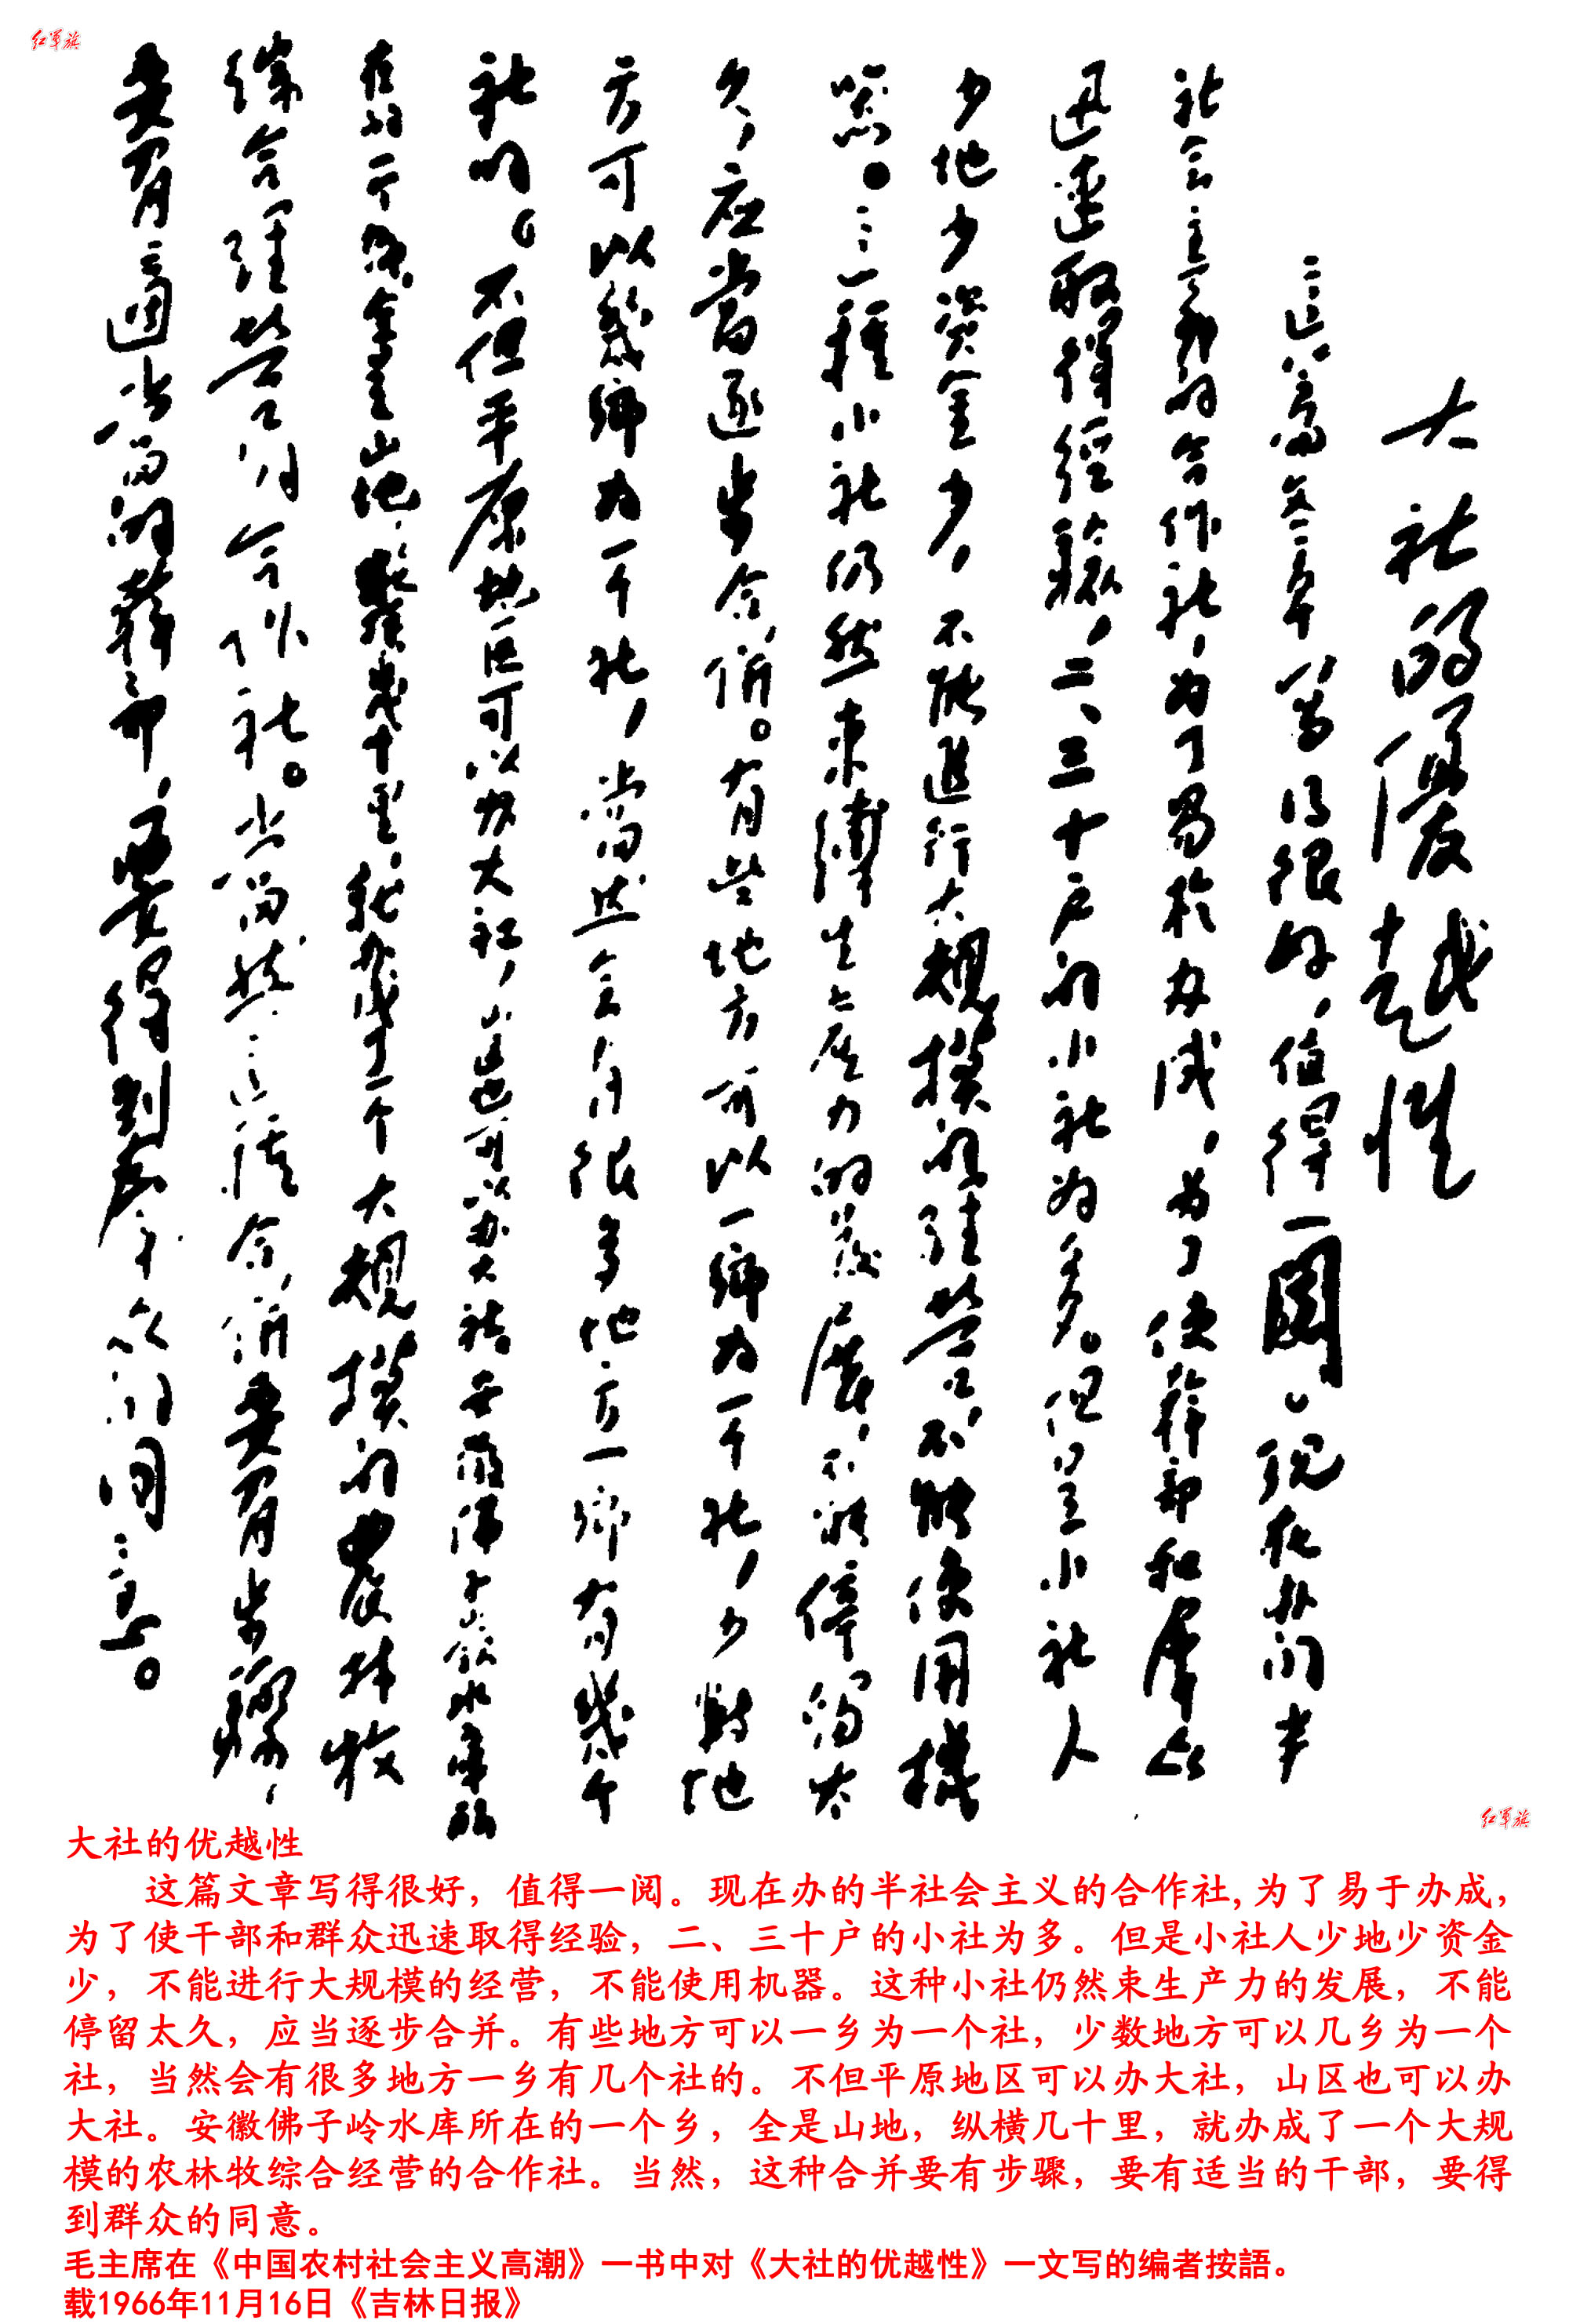 红军旗
大社的優越性
这篇文章写得很好，值得一閱。现在办的半
社会主义的合作社，为了易於办成，为了使幹部和羣众
迅速取得經驗，二、三十户的小社为多。但是小社人
少地少资金少，不能進行大規模的経营，不能使用機
器。这種小社仍然束縛生产力的发展，不能停留太
久，应當逐步合併。有些地方可以一鄉为一个社，少數地
方可以幾鄉为一个社，當然会有很多地方一鄉有幾个
社的。不但平原地区可以办大社，山区也可以办大社。安徽佛子岭水库所
在的一个鄉，全是山地，縱横幾十里，就办成了一个大規模的農林牧
综合経营的合作社。当然，这種合併要有步驟，
要有適当的幹部，要得到羣众的同意。
红军旗
大社的优越性
这篇文章写得很好，值得一阅。现在办的半社会主义的合作社,为了易于办成，
为了使干部和群众迅速取得经验，二、三十户的小社为多。但是小社人少地少资金
少，不能进行大规模的经营，不能使用机器。这种小社仍然束生产力的发展，不能
停留太久，应当逐步合并。有些地方可以一乡为一个社，少数地方可以几乡为一个
社，当然会有很多地方一乡有几个社的。不但平原地区可以办大社，山区也可以办
大社。安徽佛子岭水库所在的一个乡，全是山地，纵横几十里，就办成了一个大规
模的农林牧综合经营的合作社。当然，这种合并要有步骤，要有适当的干部，要得
到群众的同意。
毛主席在《中国农村社会主义高潮》一书中对《大社的优越性》一文写的编者按語。
载1966年11月16日《吉林日报》